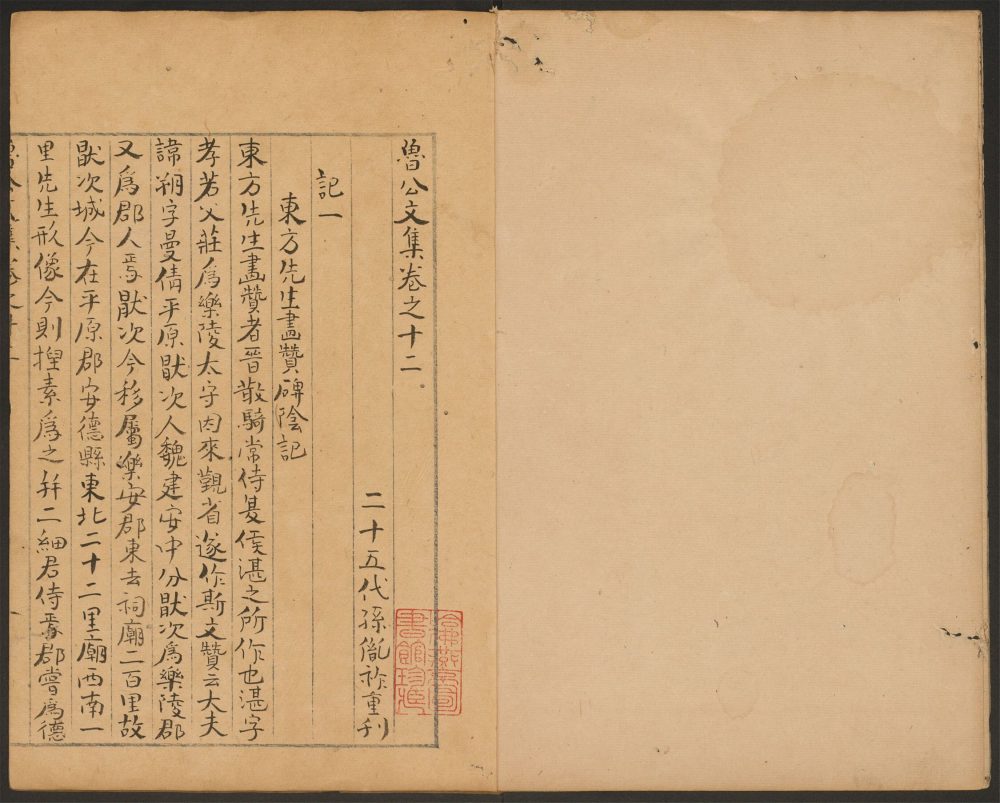 魯公文集卷之十二
二十五代孫胤祚重刋
記一
東方先生畫贊碑陰記
東方先生畫贊者晉散騎常侍夏侯湛之所作也湛字
孝若父莊爲樂陵太守因來覲省遂作斯文贊云大夫
諱朔字曼倩平原猒次人魏建安中分猒次爲樂陵郡
又爲郡人焉猒次今移屬樂安郡東去祠廟二百里故
猒次城今在平原郡安德縣東北二十二里廟西南一
里先生形像今則捏素爲之并二細君侍焉郡嘗爲德
魯公文集卷之十二
哈佛燕京圖書館珍藏